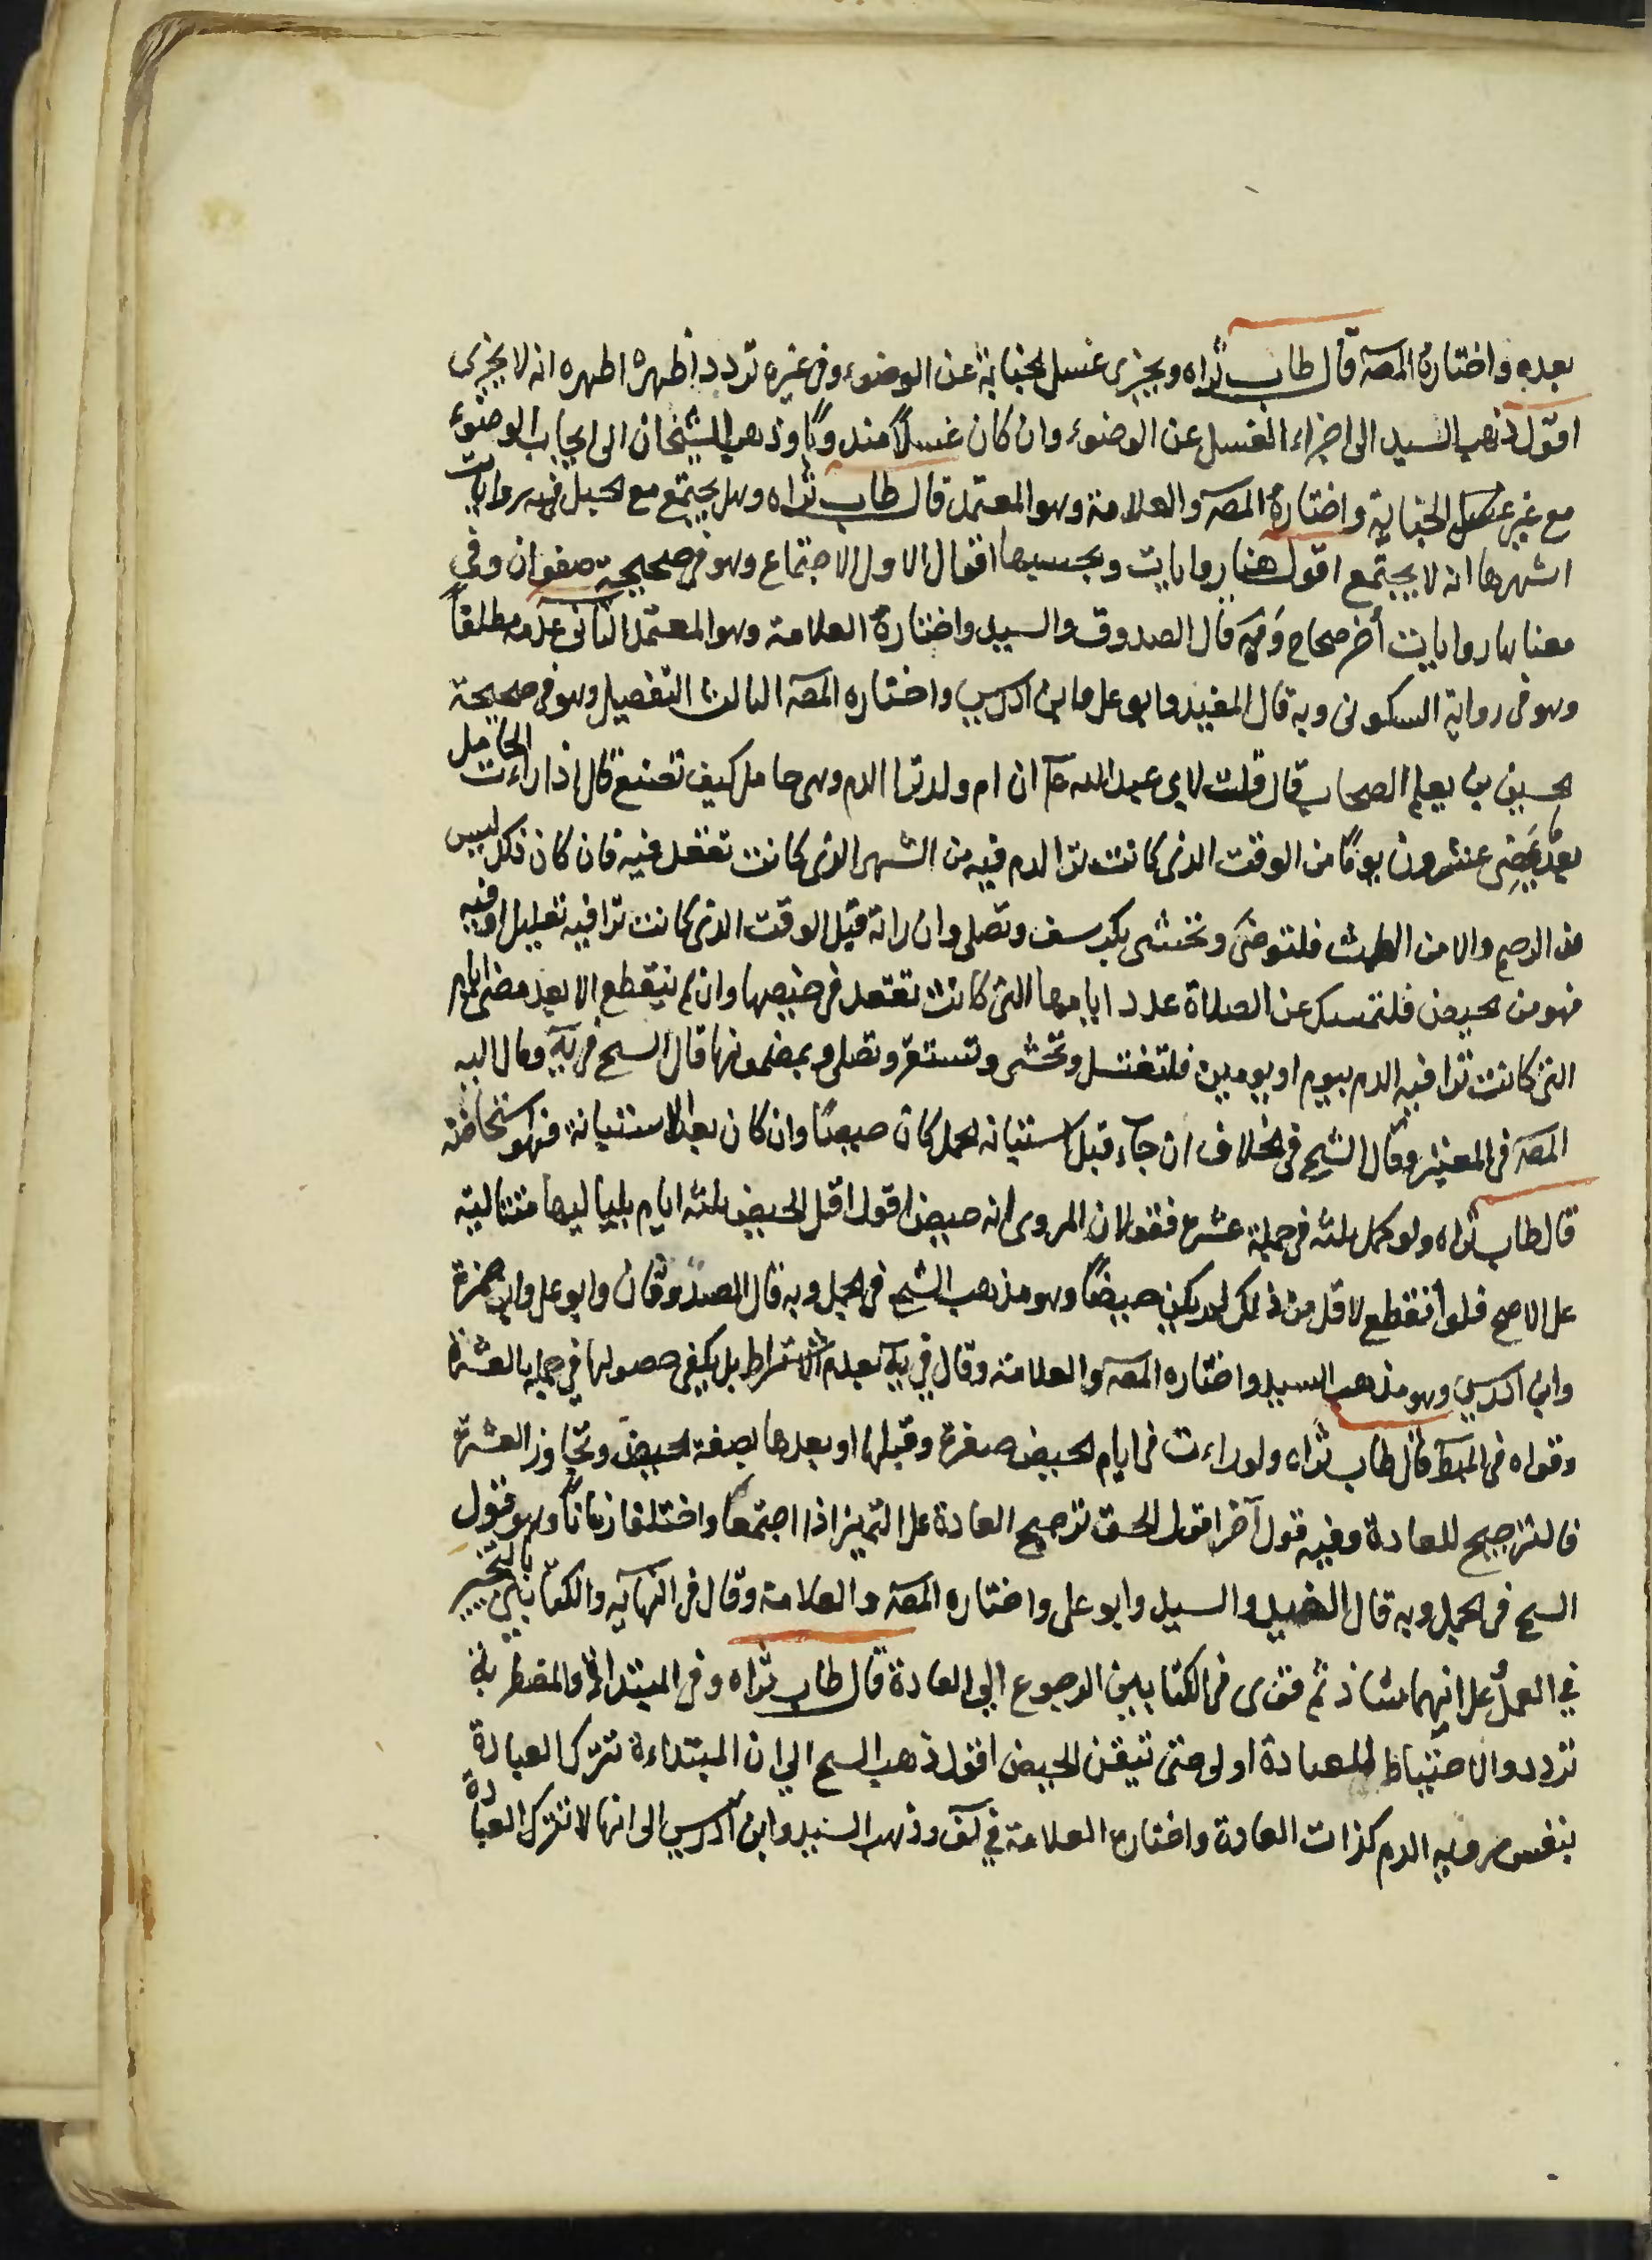 بعده واختاره المصـ قال طاب ثراه ويجزى غسل الجنابة عن الوضوء وفى غيره تردد اظهره اظهره انه لا يجزى
اقول ذهب السيد الى اجزاء الغسل عن الوضوء وان كان غسلاً مندوباً وذهب الشيخان الى ايجاب الوضوء
مع غير غسل الجنابة واختاره المصـ والعلامة وهو المعتمد قال طاب ثراه وهل يجتمع مع الحبل فيه روايات
اشهرها انه لا يجتمع اقول هنا روايات وبحسبها اقوال الاول الاجتماع وهو فى صحيحة صفوان وفي
معناها روايات أخر صحاح وَبه قال الصدوق والسيد واختاره العلامة وهو المعتمد الثانى عدمه مطلقاً
وهو فى رواية السكونى وبه قال المفيد وابو على وابن ادريس واختاره المصـ الثالث التفصيل وهو فى صحيحة
الحسين بن نعيم الصحاب قال قلت لابى عبد الله ع ان ام ولد ترا الدم وهى حامل كيف تصنع قال اذا رأت الحامل
بعد ما يمضى عشرون يوماً من الوقت الذى كانت ترا الدم فيه من الشهر الذى كانت تقعد فيه فان كان ذلك ليس
من الرحم والا من الطمث فلتوضى وتحتشى بكرسف وتصلى وان راته قبل الوقت الذى كانت ترا فيه بقليل او فيه
فهو من الحيض فلتمسك عن الصلاة عدد ايامها التى كانت تقعد فى حيضها وان لم ينقطع الا بعد مضى الايام
التى كانت ترا فيه الدم بيوم او يومين فلتغتسل وتحشى وتستثفر وتصلى وبمضمونها قال الشيخ فى يه ومال اليه
المصـ فى المعتبر وقال الشيخ فى الخلاف ان جآء قبل استبانه الحمل كان حيضاً وان كان بعد الاستبانة فهو استحاضة
قال طاب ثراه ولو كمل ثلثه فى جملة عشرة فقولان المروى انه حيض اقول اقل الحيض ثلثه ايام بلياليها متتالية
على الاصح فلو أنقطع لاقل من ذلك لم يكن حيضاً وهو مذهب الشيخ فى الجمل وبه قال الصدوقان وابو على وابن حمزة
وابن ادريس وهو مذهب السيد واختاره المصـ والعلامة وقال في يه بعدم الاشتراط بل يكفى حصولها في جملة العشرة
وقواه فى المبسط قال طاب ثراه ولو راءت فى ايام الحيض صفرة وقبلها او بعدها بصفة الحيض وتجاوز العشرة
فالترجيح للعادة وفيه قول آخر اقول الحق ترجيح العادة على التميز اذا اجتمعا واختلفا زماناً وهو قول
الشيخ فى الجمل وبه قال المفيد والسيد وابو على واختاره المصـ والعلامة وقال فى النهاية والكتابين بالتخيير
في العمل على انهما شاذ ثم قوى فى الكتابين الرجوع الى العادة قال طاب ثراه وفى المبتداة والمضطربة
تردد والاحتياط للعبادة اولى حتى تتيقن الحيض اقول ذهب الشيخ الي ان المبتداءة تترك العبادة
بنفس روية الدم كذات العادة واختاره العلامة في لف وذهب السيد وابن ادريس الى انها لا تترك العبادة